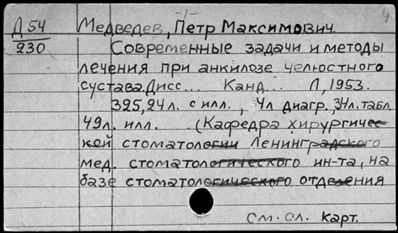 4
Д 54
230
-/-
Медведев, Петр Максимович.
Современные задачи и методы
лечения при анкилозе челюстного
сустава. Дисс... Канд... Л, 1953.
325, 24л. с илл., 4л диагр., 34л. табл.
49л. илл. (Кафедра хирургичес-
кой стоматологии Ленинградского
мед. стоматологического ин-та, на
базе стоматологического отделения
см. сл. карт.